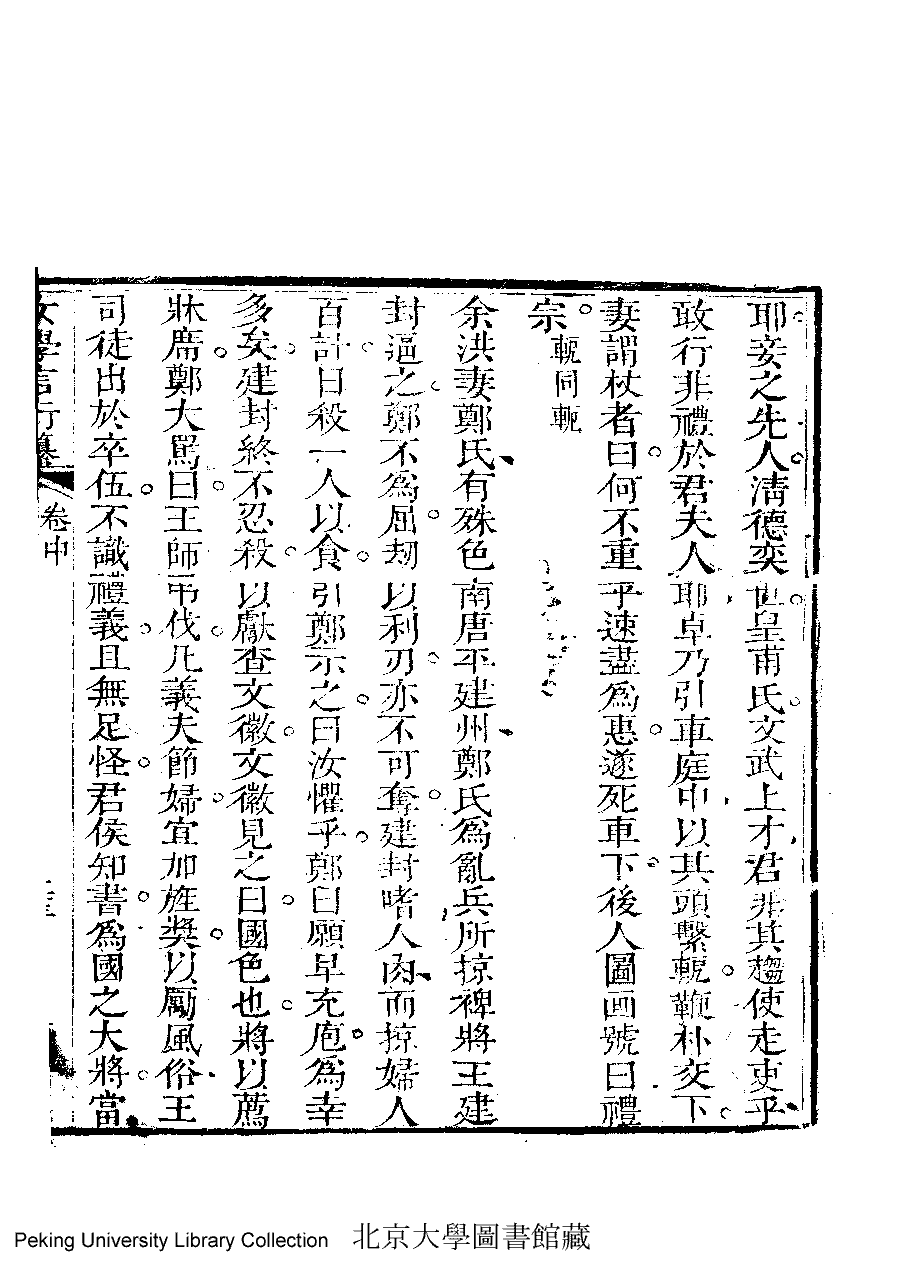 耶妾之先人清德奕世皇甫氏文武上才君非其趨使走吏乎
敢行非禮於君夫人耶卓乃引車庭中以其頭繫軶鞭朴交下
妻謂杖者曰何不重乎速盡為惠遂死車下後人圖画號曰禮
宗
軶同軛
余洪妻鄭氏有殊色南唐平建州鄭氏為亂兵所掠裨將王建
封逼之鄭不為屈刼以利刃亦不可奪建封嗜人肉而掠婦人
百計日殺一人以食引鄭示之曰汝懼乎鄭曰願早充庖為幸
多矣建封終不忍殺以獻查文徽文徽見之曰國色也將以薦
牀席鄭大罵曰王師弔伐凡義夫節婦宜加旌獎以勵風俗王
司徒出於卒伍不識禮義且無足怪君侯知書為國之大將當
女學言行纂
卷中
Peking University Library Collection 北京大學圖書館藏